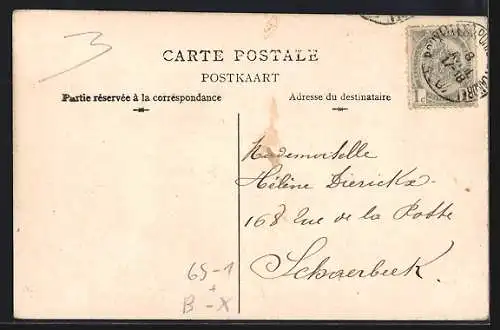 3
CARTE POSTALE
POSTKAART
Partie réservée à la correspondance
Adresse du destinataire
1c
Mademoiselle
Hélène Dierickx
168 Rue de la Poste
Schaerbeek
6S-1
+
B-X